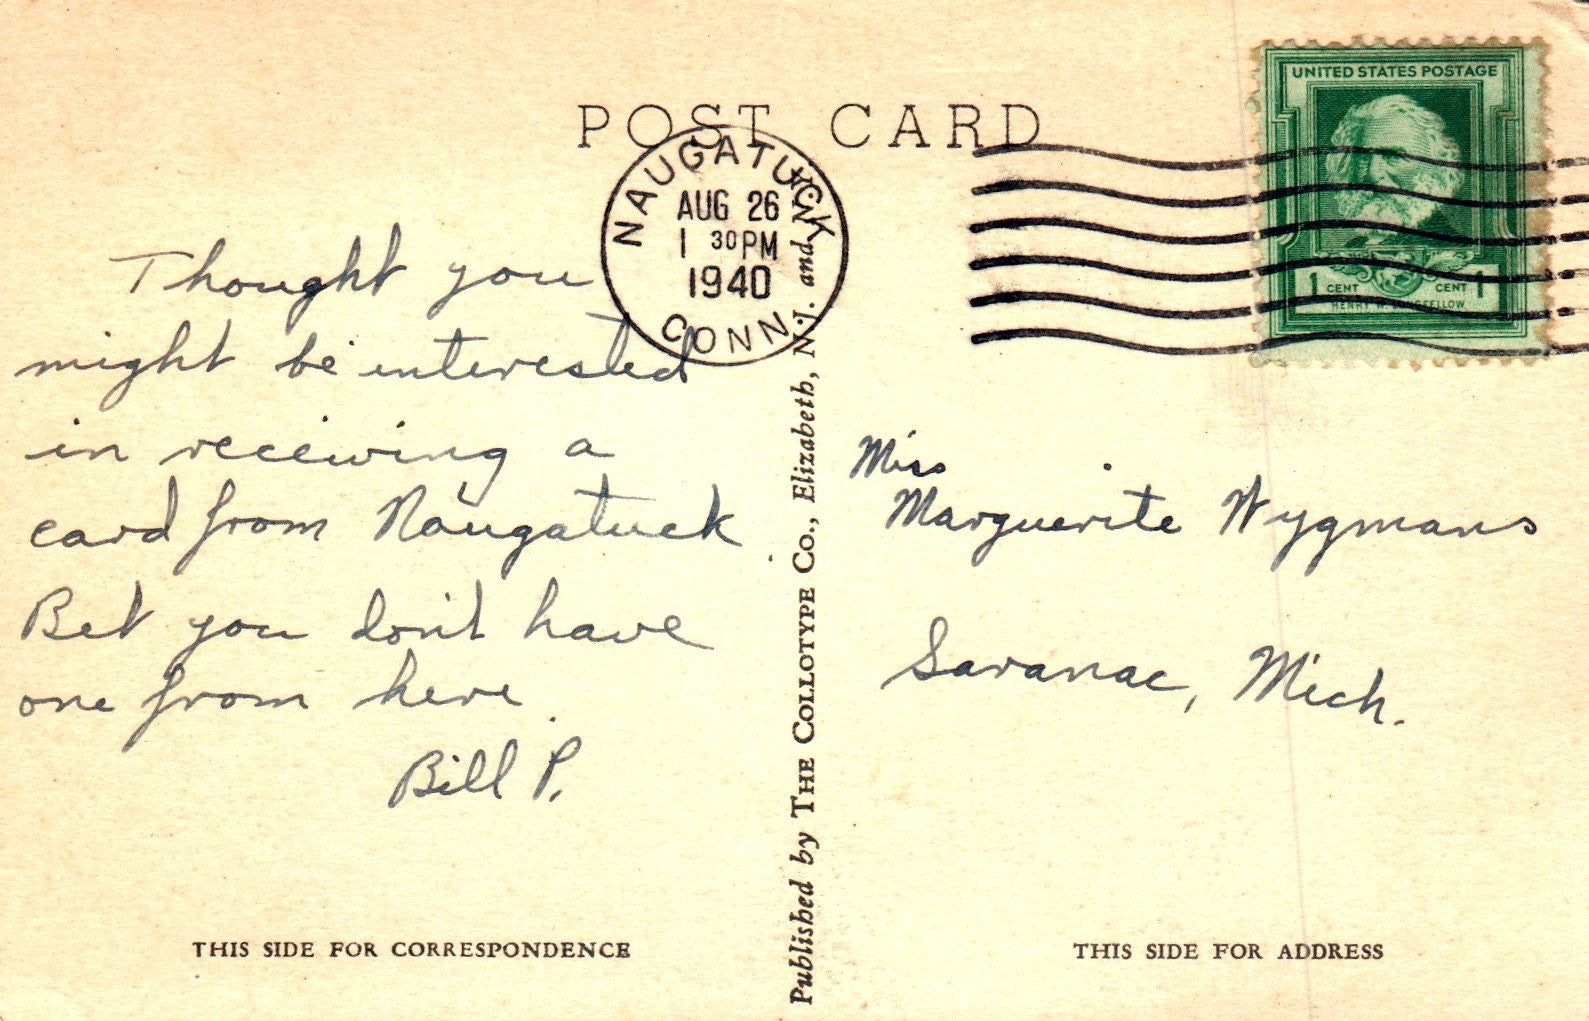 POST CARD
NAUGATUCK
AUG 26
1 30 PM
1940
CONN.
UNITED STATES POSTAGE
1 CENT CENT 1
HENRY W. LONGFELLOW
Thought you
might be interested
in receiving a
card from Naugatuck
Bet you don't have
one from here.
Bill P.
Published by THE COLLOTYPE Co., Elizabeth, N.J. and N.Y.
Miss
Marguerite Wygmans
Saranac, Mich.
THIS SIDE FOR CORRESPONDENCE
THIS SIDE FOR ADDRESS